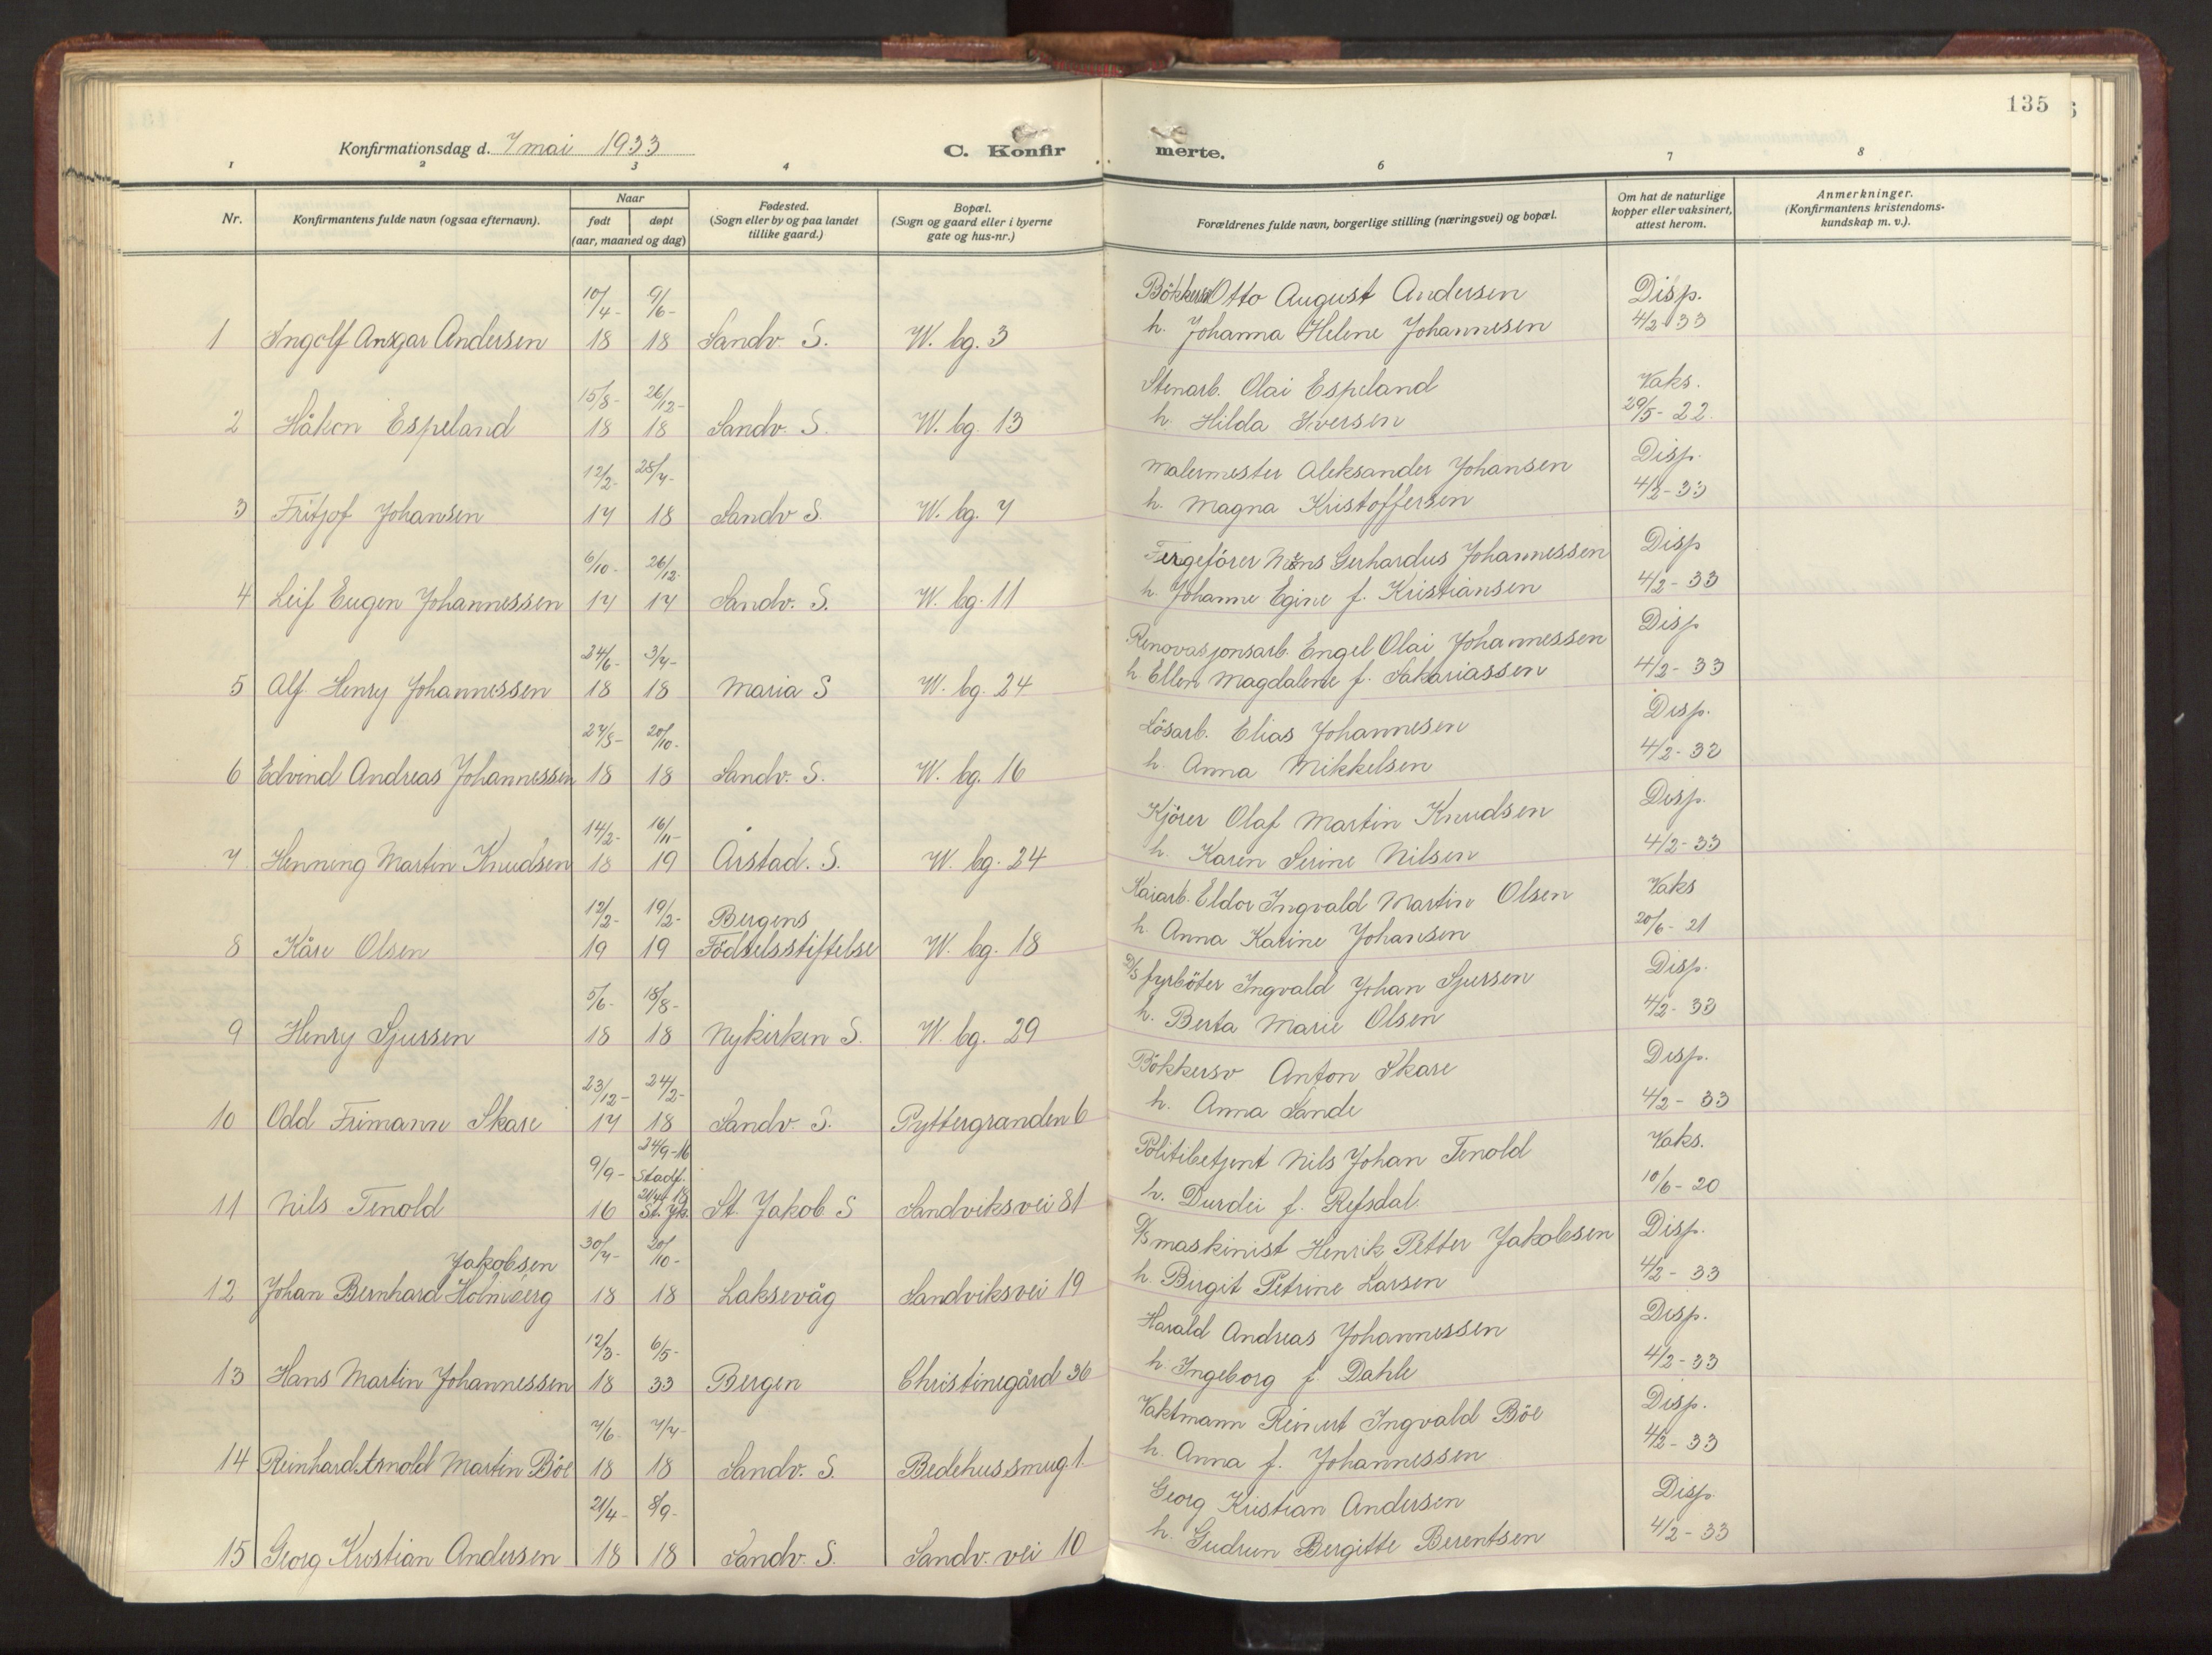 135
Konfirmationsdag d. 7 mai 1933
C. Konfirmerte.
1 2 3 4 6 7 8
Nr.
Konfirmantens fulde navn (ogsaa efternavn).
Naar
født
døpt
(aar, maaned og dag)
Fødested.
(Sogn eller by og paa landet
tillike gaard.)
Bopæl.
(Sogn og gaard eller i byerne
gate og hus-nr.)
Forældrenes fulde navn, borgerlige stilling (næringsvei) og bopæl.
Om hat de naturlige
kopper eller vaksinert,
attest herom.
Anmerkninger.
(Konfirmantens kristendoms-
kundskap m. v.).
10/4- 9/6- Bökkersv Otto August Andersen Disp.
1 Ingolf Ansgar Andersen 18 18 Sandv. S. W. bg. 3 h. Johanna Helene Johannesen 4/2-33
15/8- 26/12- Stenarb. Olai Espeland Vaks.
2 Håkon Espeland 18 18 Sandv. S. W. bg. 13 h. Hilda Iversen 29/5-22.
12/2- 28/7- Malermester Aleksander Johansen Disp.
3 Fritjof Johansen 17 18 Sandv S. W. bg. 7 h. Magna Kristoffersen 4/2-33
6/10- 26/12- Fergefører Mons Gerhardus Johannessen Disp
4 Leif Eugen Johannessen 17 17 Sandv. S. W. bg. 11 h. Johanne Egine f. Kristiansen 4/2-33
24/6- 3/7- Renovasjonsarb. Engel Olai Johannessen Disp
5 Alf Henry Johannessen 18 18 Maria S W. bg. 24 h Ellen Magdalene f. Sakariassen 4/2-33
20/10- Lösarb. Elias Johannesen Disp.
6 Edvind Andreas Johannessen 18 18 Sandv. S. W. bg. 16 h. Anna Mikkelsen 4/2-33
14/2- 16/11- Kjörer Olaf Martin Knudsen Disp.
7 Henning Martin Knudsen 18 19 Årstad. S. W. bg. 24 h. Karen Serine Nilsen 4/2-33
12/2- 19/2- Bergens Kaiarb. Eldor Ingvald Martin Olsen Vaks
8 Kåre Olsen 19 19 Födselsstiftelse W. bg. 18 h. Anna Karine Johansen 20/6-21
5/6- 18/8- D/S fyrböter Ingvald Johan Sjursen Disp.
9 Henry Sjursen 18 18 Nykirken S. W. bg. 29 h. Berta Marie Olsen 4/2-33
23/12- 24/2- Bökkersv Anton Skare Disp.
10 Odd Frimann Skare 17 18 Sandv. S. Pyttergranden 6 h. Anna Sande 4/2-33
9/9- 24/9-16 Stadf. Politibetjent Nils Johan Tenold Vaks.
11 Nils Tenold 16 St. Jk. St. Jakob S Sandviksvei 81 h. Durdei f. Refsdal 10/6-20
Jakobsen 30/7- 20/10- D/S maskinist Henrik Petter Jakobsen Disp.
12 Johan Bernhard Holmberg 18 18 Laksevåg Sandviksvei 19 h. Birgit Petrine Larsen 4/2-33
12/3- 6/5- Harald Andreas Johannessen Disp.
13 Hans Martin Johannessen 18 33 Bergen Christinegård 36 h. Ingeborg f. Dahle 4/2-33
7/6- 7/7- Vaktmann Reinert Ingvald Böe Disp.
14 Reinhard Arnold Martin Böe 18 18 Sandv. S. Bedehussmug. 1. h. Anna f. Johannessen 4/2-33
21/4- 8/9- Georg Kristian Andersen Disp
15 Georg Kristian Andersen 18 18 Sandv. S. Sandv. vei 10 h. Gudrun Bergitte Berentsen 4/2-33